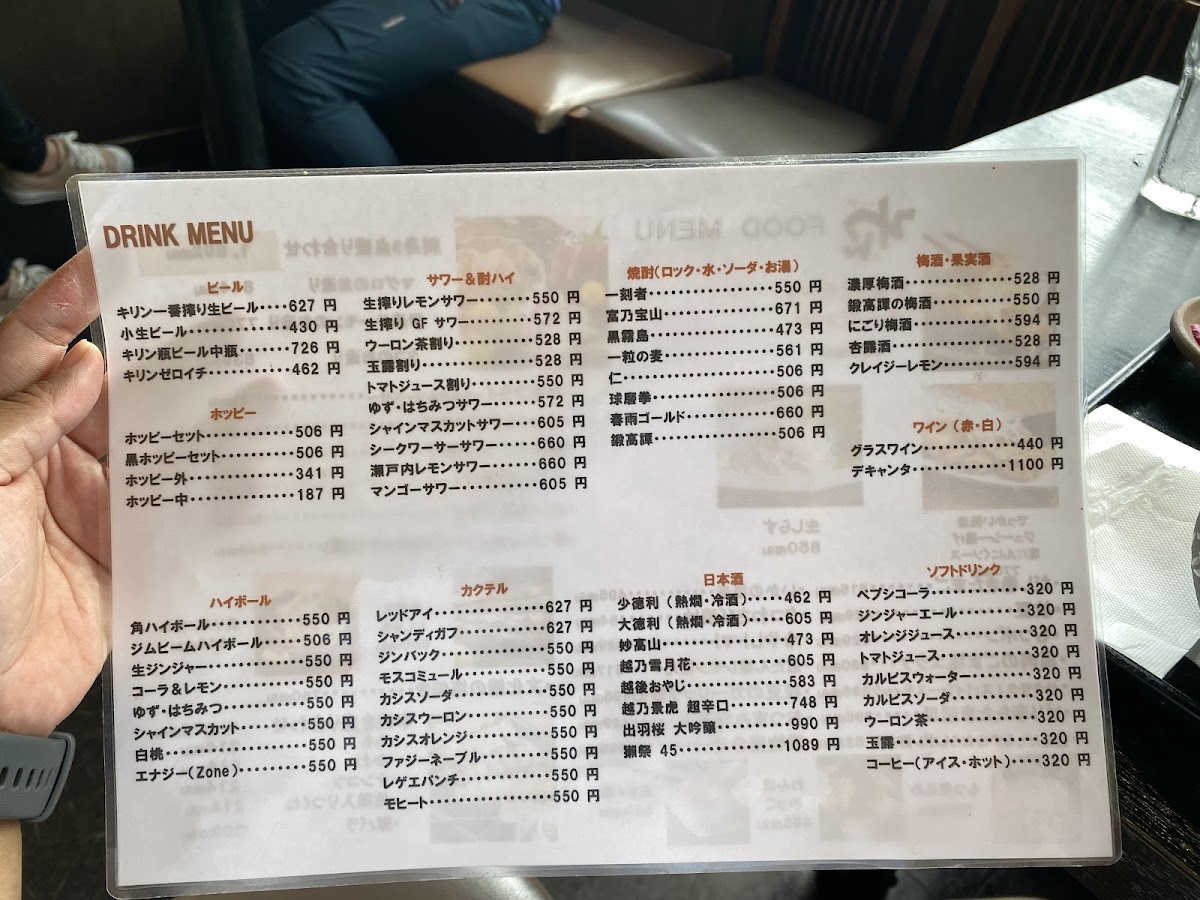 DRINK MENU
ビール
キリン一番搾り生ビール････627 円
小生ビール････････････430 円
キリン瓶ビール中瓶･･････726 円
キリンゼロイチ･････････462 円
ホッピー
ホッピーセット･･････････506 円
黒ホッピーセット････････506 円
ホッピー外････････････341 円
ホッピー中････････････187 円
サワー＆酎ハイ
生搾りレモンサワー･･････550 円
生搾り GF サワー･･･････572 円
ウーロン茶割り･････････528 円
玉露割り･････････････528 円
トマトジュース割り･･････550 円
ゆず・はちみつサワー････572 円
シャインマスカットサワー･･･605 円
シークワーサーサワー････660 円
瀬戸内レモンサワー･････660 円
マンゴーサワー････････605 円
焼酎(ロック・水・ソーダ・お湯)
一刻者･･････････････550 円
富乃宝山････････････671 円
黒霧島･･････････････473 円
一粒の麦････････････561 円
仁･････････････････506 円
球磨拳･････････････506 円
春雨ゴールド･････････660 円
鍛高譚･････････････506 円
梅酒・果実酒
濃厚梅酒････････････528 円
鍛高譚の梅酒････････550 円
にごり梅酒･･････････594 円
杏露酒･････････････528 円
クレイジーレモン･･････594 円
ワイン (赤・白)
グラスワイン･････････440 円
デキャンタ･･････････1100 円
ハイボール
角ハイボール･･････････550 円
ジムビームハイボール････506 円
生ジンジャー･･････････550 円
コーラ＆レモン････････550 円
ゆず・はちみつ････････550 円
シャインマスカット･･････550 円
白桃･･･････････････550 円
エナジー(Zone)････････550 円
カクテル
レッドアイ････････････627 円
シャンディガフ････････627 円
ジンバック･･･････････550 円
モスコミュール････････550 円
カシスソーダ･････････550 円
カシスウーロン････････550 円
カシスオレンジ････････550 円
ファジーネーブル･･････550 円
レゲエパンチ･････････550 円
モヒート････････････550 円
日本酒
少徳利 (熱燗・冷酒)････462 円
大徳利 (熱燗・冷酒)････605 円
妙高山･････････････473 円
越乃雪月花･････････605 円
越後おやじ･････････583 円
越乃景虎 超辛口･････748 円
出羽桜 大吟醸･･････990 円
獺祭 45･･･････････1089 円
ソフトドリンク
ペプシコーラ･････････320 円
ジンジャーエール･･････320 円
オレンジジュース･･････320 円
トマトジュース････････320 円
カルピスウォーター････320 円
カルピスソーダ････････320 円
ウーロン茶･･････････320 円
玉露･･････････････320 円
コーヒー(アイス・ホット)････320 円